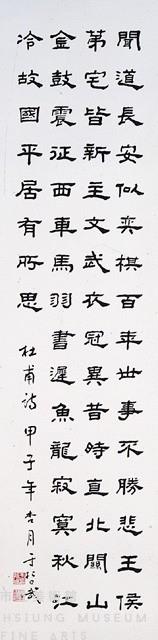 聞道長安似奕棋百年世事不勝悲王侯
第宅皆新主文武衣冠異昔時直北關山
金鼓震征西車馬羽書遲魚龍寂寞秋江
冷故國平居有所思 杜甫詩 甲子年杏月于
HSIUNG MUSEUM
FINE ARTS